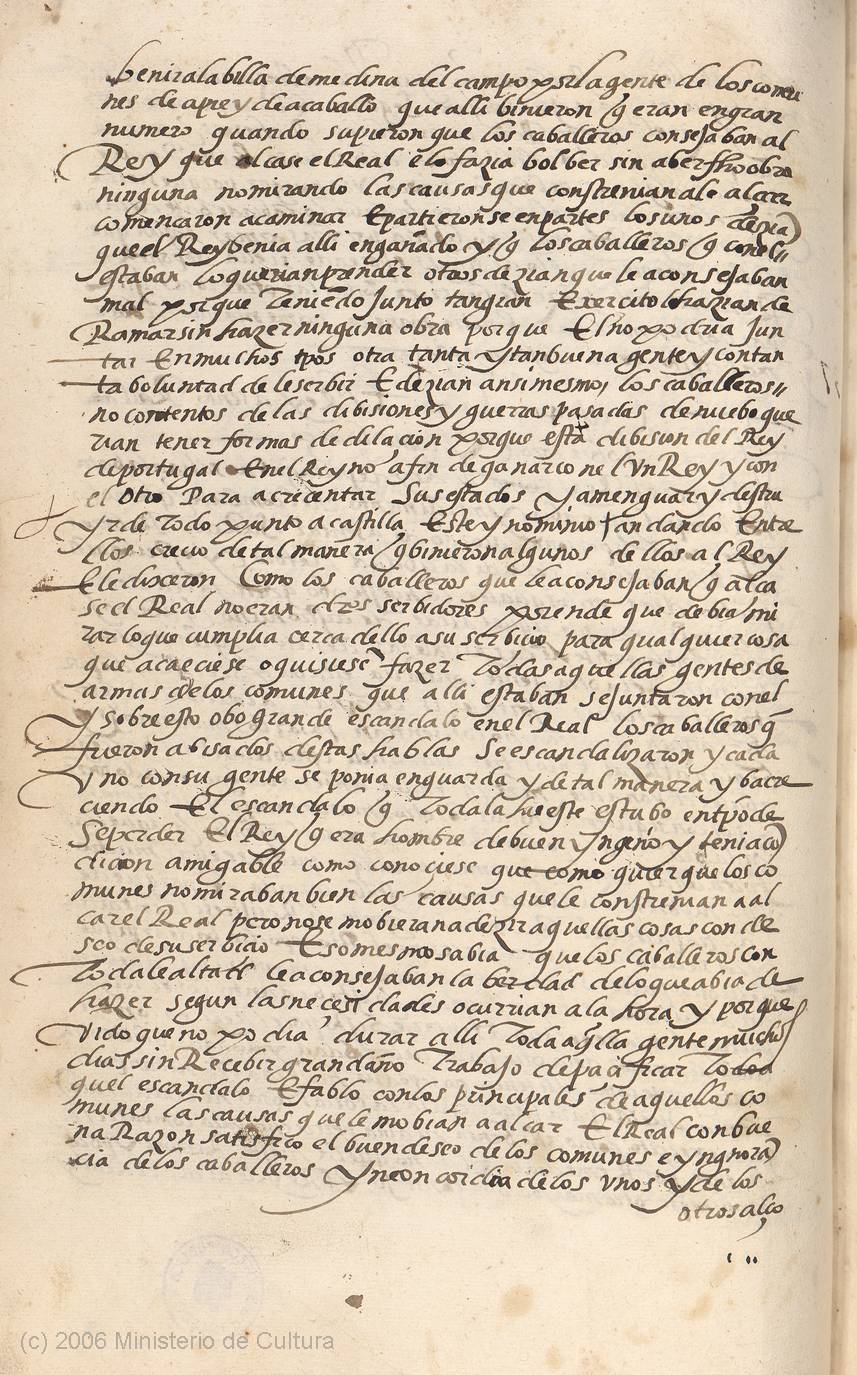 benir a la billa de medina del campo y por la gente de los comu
nes de a pie y de a caballo que alli binieron q eran en gran
numero quando supieron que los caballeros consejaban al
Rey que alcase el Real e lo fazia bolber sin aber fho obra
ninguna no mirando las causas que constrenian a le alçar
començaron a caminar E partieronse en partes los unos dezia
que el Rey benia alli engañado y q los caballeros q con el
estaban lo querian prender otros dezian que le aconsejaban
mal porque teniedo junto tan gran Exercito lo hazian de
Ramar sin hazer ninguna obra porque El no podria Jun
tar En muchos tpos otra tanta y tan buena gente y con tan
ta boluntad de le serbir E dezian ansi mesmo, los caballeros
no contentos de las dibisiones y guerras pasadas de nuebo que
rian tener formas de dilacion porque esta dibision del Rey
de portugal En el Reyno a fin de ganar con el Un Rey y con
el Otro Para acrecentar Sus estados y amenguar y destru
yr de todo punto a castilla Este ynominio andando Entre
llos crecio de tal manera q binieron algunos dellos al Rey
E le dixeron Como los caballeros que le aconsejaban q alca
se el Real no eran serbidores por ende que debia mi
rar lo que cumplia cerca dello a su serbicio para qualquier cosa
que acaeciese o quisiese fazer todas aquellas gentes de
armas de los comunes que alli estaban se juntaron con el
y sobre esto obo grande escandalo en el Real los caballeros q
fueron abisados destas hablas Se escandalizaron y cada
vno con su gente se ponia en guarda y de tal manera yba cre
ciendo El escandalo q toda la hueste estubo en tpo de
Se perder El Rey q era hombre de buen yngenio y tenia co
dicion amigable como conociese que como quier que los co
munes no miraban bien las causas que le constrenian a al
car el Real pero no se mobieran a dezir aquellas cosas con de
seo de su serbicio Eso mesmo sabia que los caballeros con
toda lealtad le aconsejaban la berdad de lo que abia de
hazer segun las necesidades ocurrian a la hora y porque
vido que no podia durar alli toda aqlla gente mucho
dias sin Recebir gran daño trabajo de pacificar todo a
quel escandalo E fablo con los principales de aquellos co
munes las causas que le mobian a alcar El Real con bue
na Razon satisfizo el buen deseo de los comunes e ynorã
cia de los caballeros y ne de los vnos y de los
otros alço
(c) 2006 Ministerio de Cultura